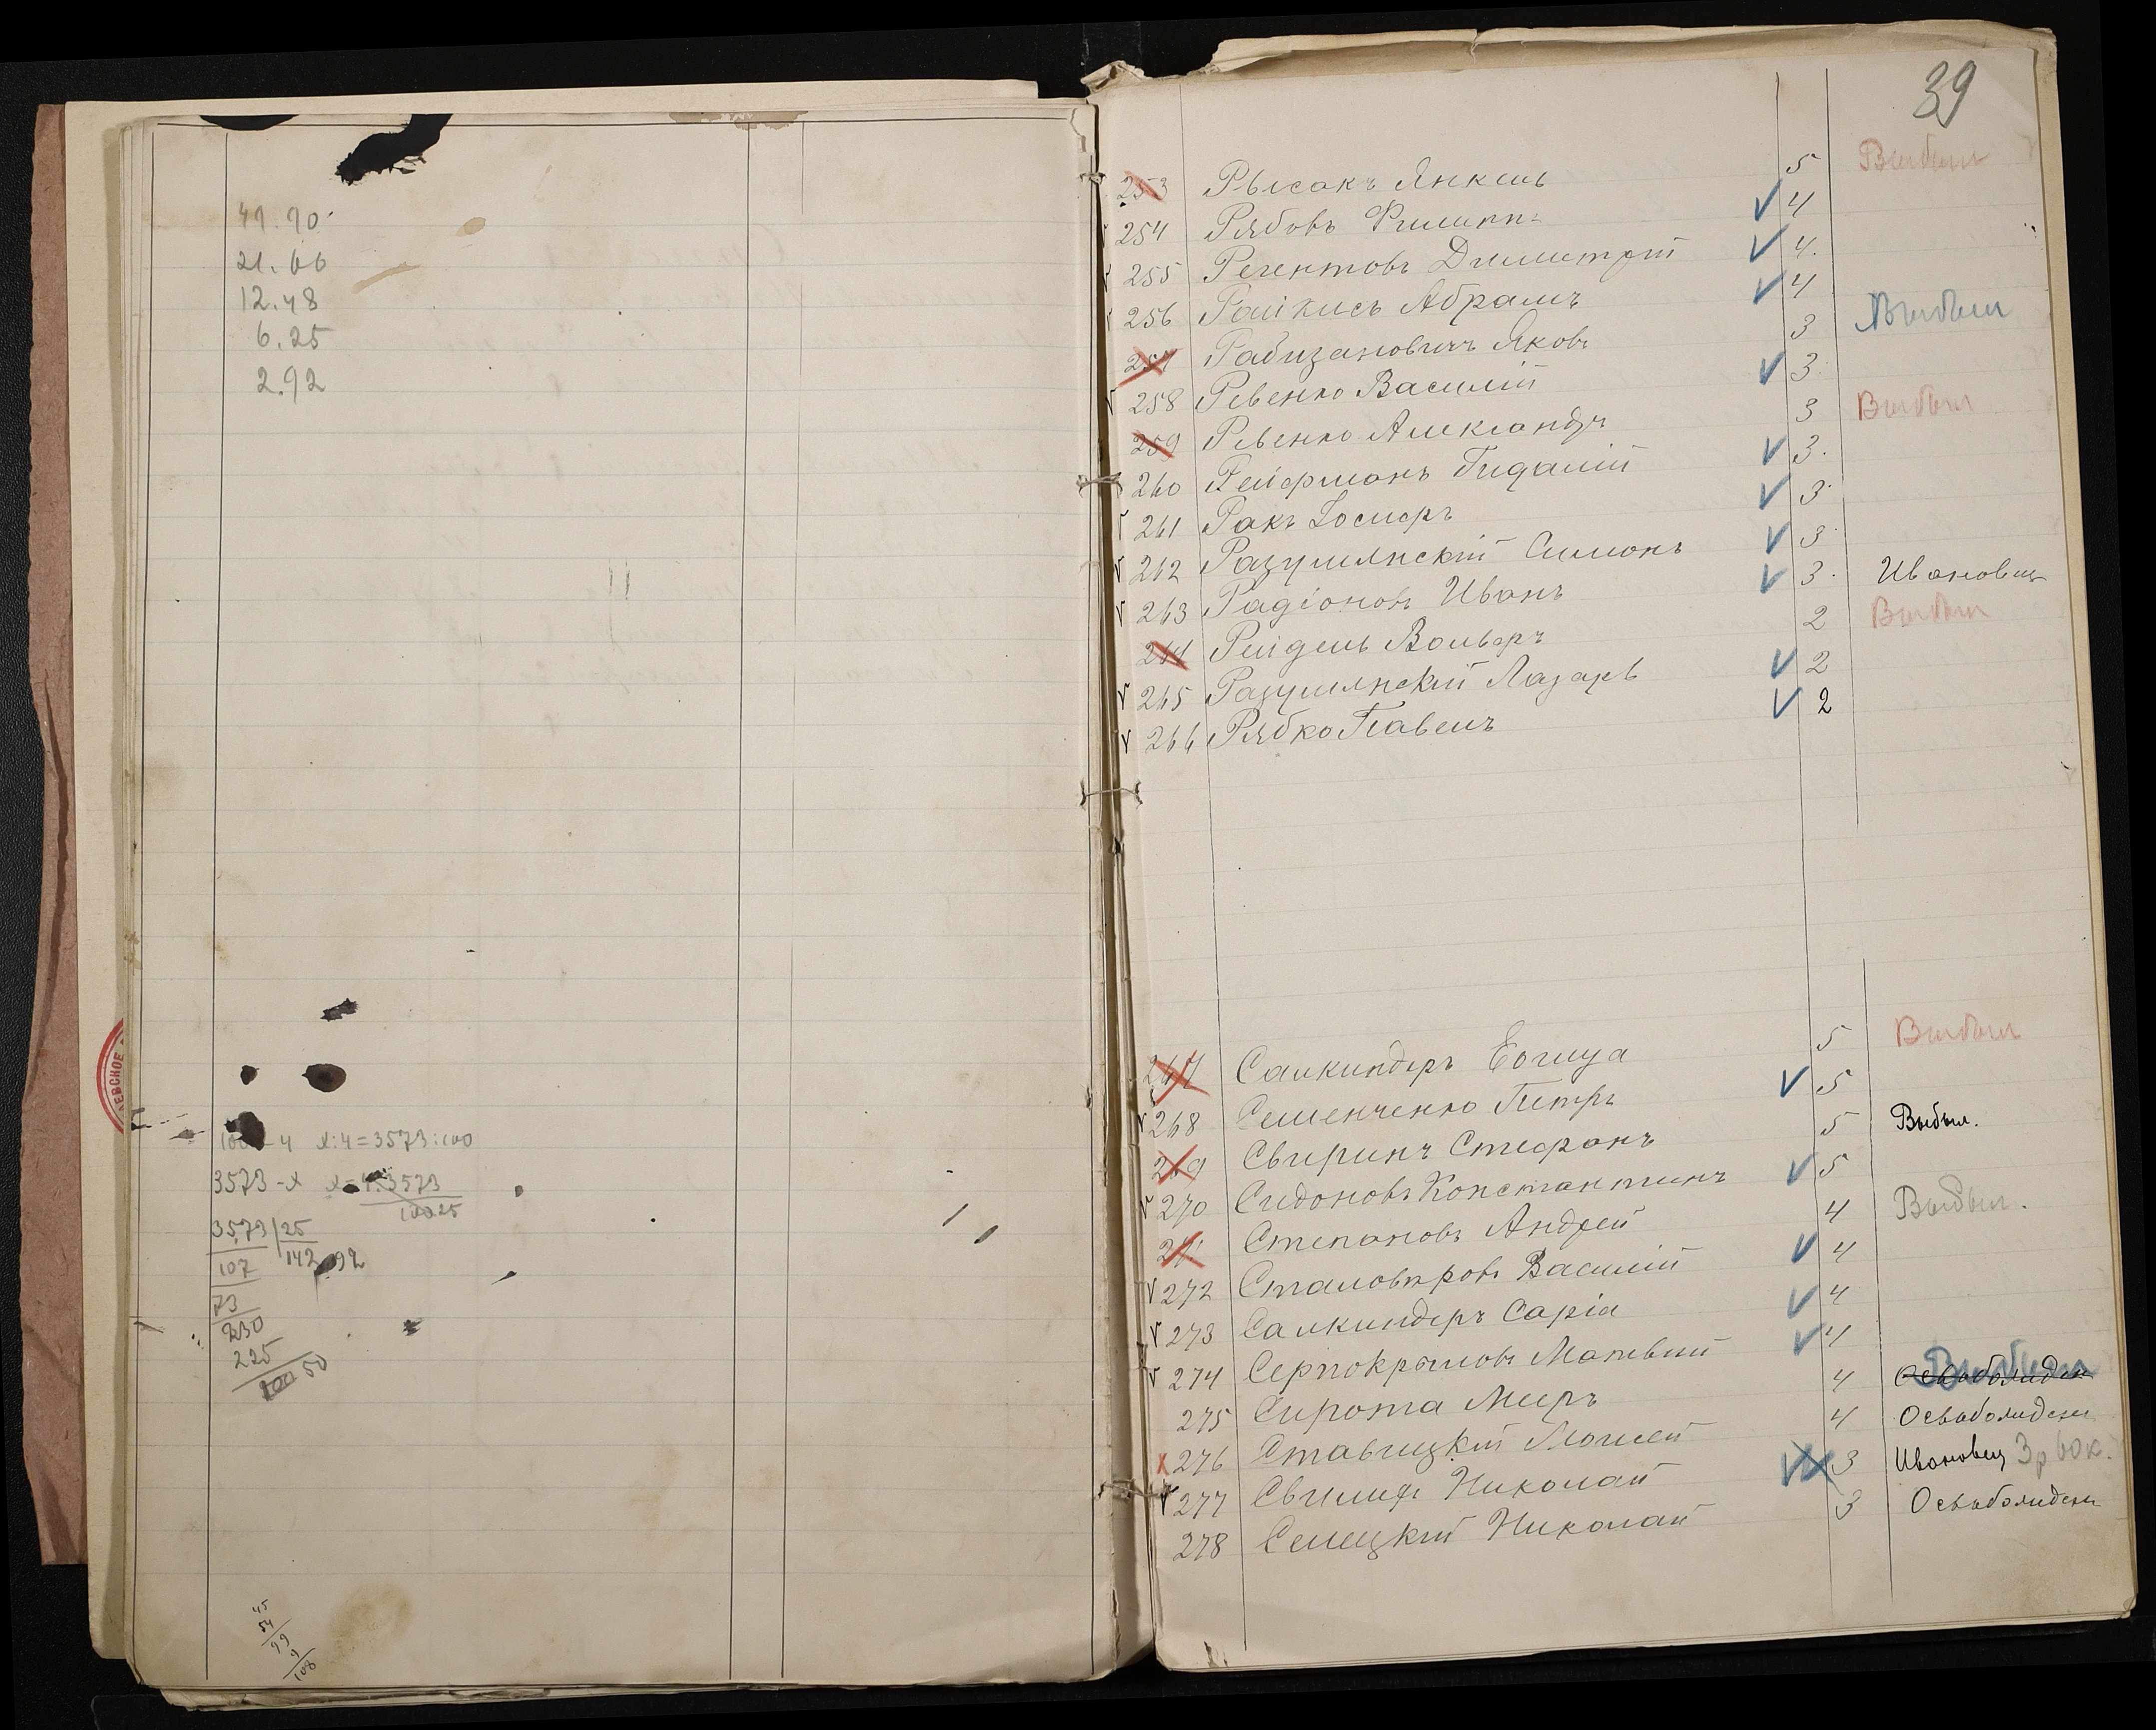 41.90
21.66
12.48
6.25
2.92
ЕВСКОЕ
x:4=3573:100
3573-x x=4.3573
100 25
3573|25
107 142,92
73
230
225
50
45
54
99
9
108
39
253 Рысакъ Янкель 5 Выбыл
254 Рябовъ Филиппъ √ 4
255 Регентовъ Димитрій √ 4.
256 Райхись Абрамъ √ 4
257 Рабизановичъ Яковъ 3 Выбыл
258 Ревенко Василій √ 3
259 Ревенко Александръ 3 Выбыл
260 Рейфманъ Гидалій √ 3.
261 Ракъ Іосифъ √ 3
262 Разумянскій Симонъ √ 3
263 Радіоновъ Иванъ √ 3. Ивановец
264 Рейдель Вольфъ 2 Выбыл
265 Разумянскій Лазарь √ 2
266 Рябко Павелъ √ 2
267 Салкиндеръ 5 Выбыл
268 Семенченко Петръ √ 5
269 Свиринъ Стефанъ 5 Выбыл.
270 Сидоновъ Константинъ √ 5
271 Степановъ Андрей 4 Выбыл.
272 Василій √ 4
273 Салкиндеръ Сарія √ 4
274 Серпокрыловъ Матвѣй √ 4
275 Сирота Меръ 4 Освобожден Выбыл
276 Ставицкій Моисей 4 Освобожден
277 Николай 3 Ивановец 3р 60к.
278 Селецкій Николай 3 Освобожден